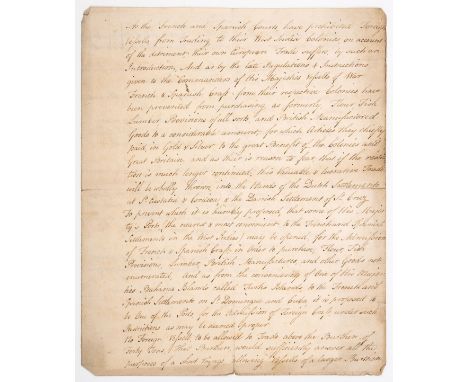 As the French and Spanish Courts have prohibited Foreign
Vessels from Trading to their West India Colonies on account
of the detriment their own European Trade suffers, by such an
Introduction, And as by the late Regulations & Instructions
given to the Commanders of His Majesties Vessells of War
French & Spanish Craft from their respective Colonies have
been prevented from purchasing as formerly Flour Fish
Lumber Provisions of all sorts and British Manufactored
Goods to a considerable amount, for which Articles they chiefly
paid in Gold & Silver to the great Benefit of the Colonies and
Great Britain and as their is reason to fear that if the
is much longer continued, this Valuable & Lucrative Trade
will be wholly thrown into the Hands of the Dutch Settlements
at St Eustatia & Curacoa & the Danish Settlement of St Cruz
To prevent which it is humbly proposed, that some of His
Ports, the nearest & most convenient to the French and Spanish
Settlements in the West Indies may be opened, for the Admission
of French & Spanish Craft in Order to purchase Flour Fish
Provisions Lumber British Manufactures and other Goods not
enumerated, And as from the conveniency of One of His
Bahama Islands called Turks Islands, to the French and
Spanish Settlements on St Domingue and Cuba is proposed to
be One of the Ports for the Admission of Foreign Craft under such
Restrictions as may be deemed proper
No Foreign Vessell to be allowed to Trade above the Burthen of
Forty Tons, This Burthen would sufficiently answer all the
purposes of a Short Voyage, allowing Vessells of a larger Burthen